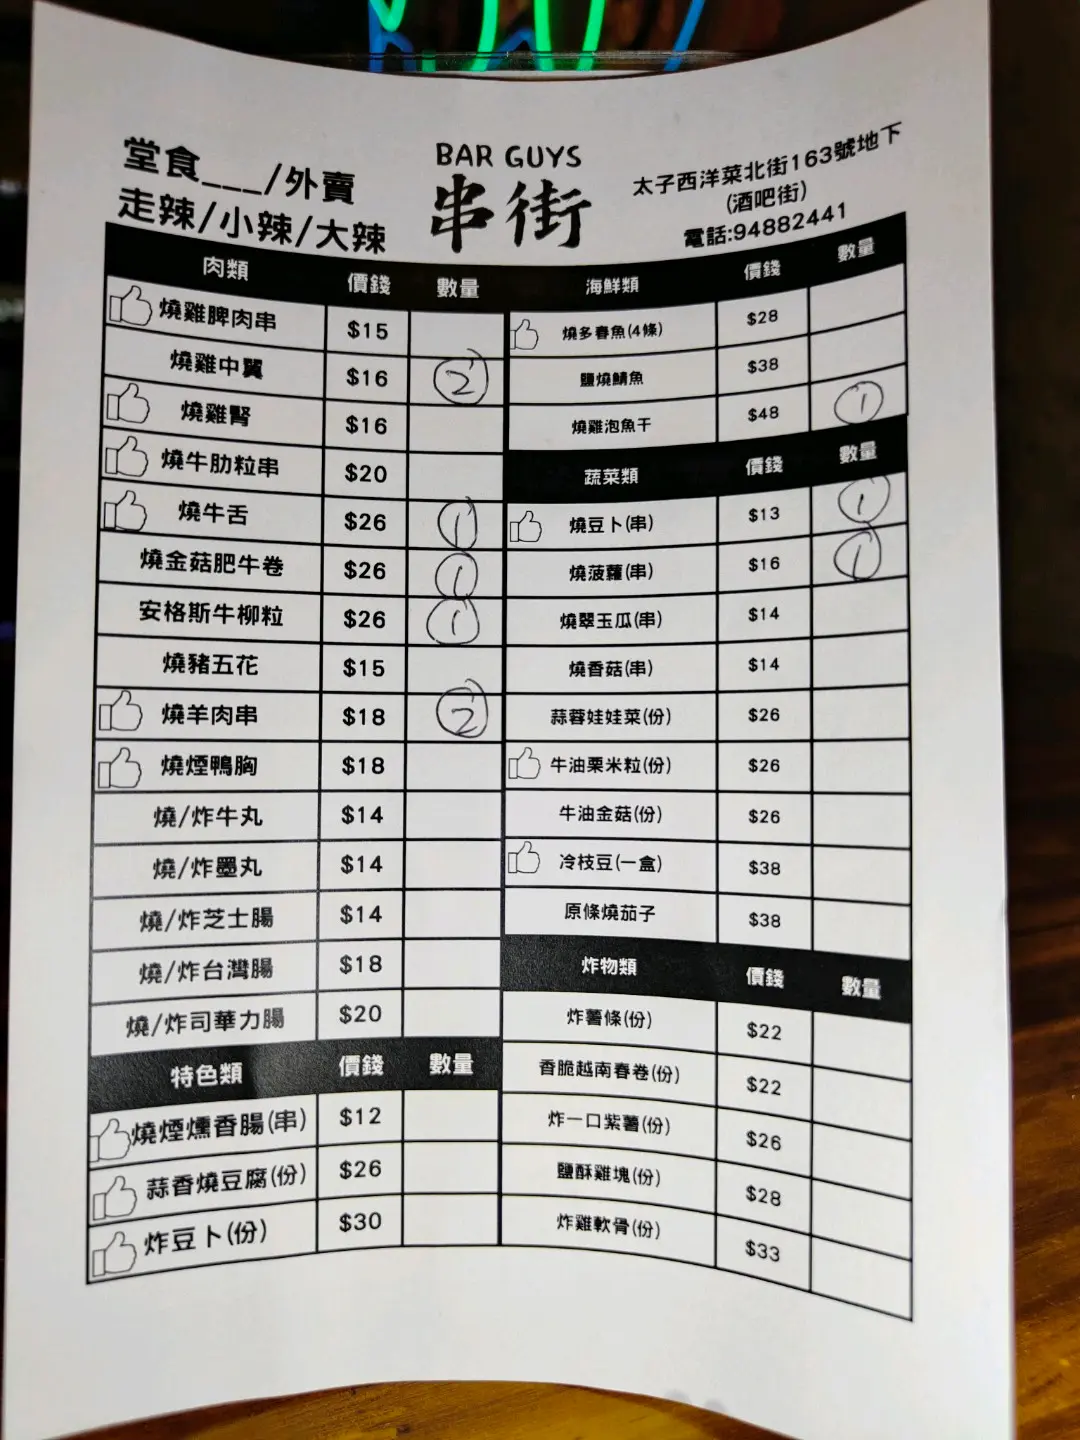 堂食___/外賣
走辣/小辣/大辣
BAR GUYS
串街
太子西洋菜北街163號地下
(酒吧街)
電話:94882441
肉類 價錢 數量
燒雞脾肉串 $15
燒雞中翼 $16 2
燒雞腎 $16
燒牛肋粒串 $20
燒牛舌 $26 1
燒金菇肥牛卷 $26 1
安格斯牛柳粒 $26 1
燒豬五花 $15
燒羊肉串 $18 2
燒煙鴨胸 $18
燒/炸牛丸 $14
燒/炸墨丸 $14
燒/炸芝士腸 $14
燒/炸台灣腸 $18
燒/炸司華力腸 $20
特色類 價錢 數量
燒煙燻香腸(串) $12
蒜香燒豆腐(份) $26
炸豆卜(份) $30
海鮮類 價錢 數量
燒多春魚(4條) $28
鹽燒鯖魚 $38
燒雞泡魚干 $48 1
蔬菜類 價錢 數量
燒豆卜(串) $13 1
燒菠蘿(串) $16 1
燒翠玉瓜(串) $14
燒香菇(串) $14
蒜蓉娃娃菜(份) $26
牛油粟米粒(份) $26
牛油金菇(份) $26
冷枝豆(一盒) $38
原條燒茄子 $38
炸物類 價錢 數量
炸薯條(份) $22
香脆越南春卷(份) $22
炸一口紫薯(份) $26
鹽酥雞塊(份) $28
炸雞軟骨(份) $33